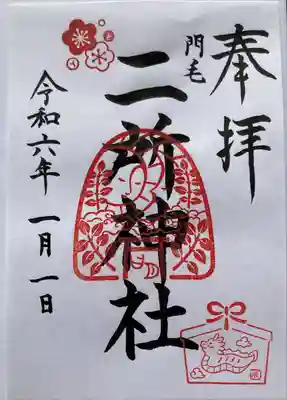 奉拝
門毛
二所神社
令和六年 一月 一日